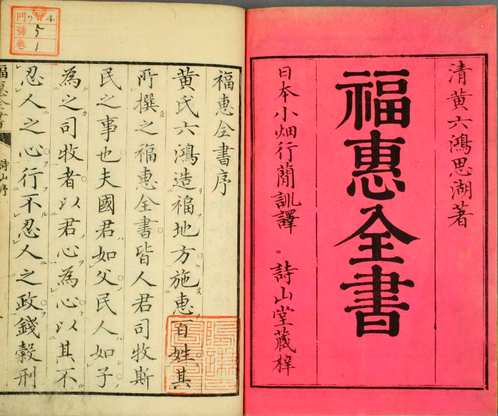 清黄六鴻思湖著
福惠全書
日本小畑行蕳訓譯
詩山堂藏梓
福惠全書序
黄氏六鴻造福地方施惠百姓其
所撰之福惠全書皆人君司牧斯
民之事也夫國君如父民人如子
為之司牧者以君心為心以其不
忍人之心行不忍人之政錢穀刑